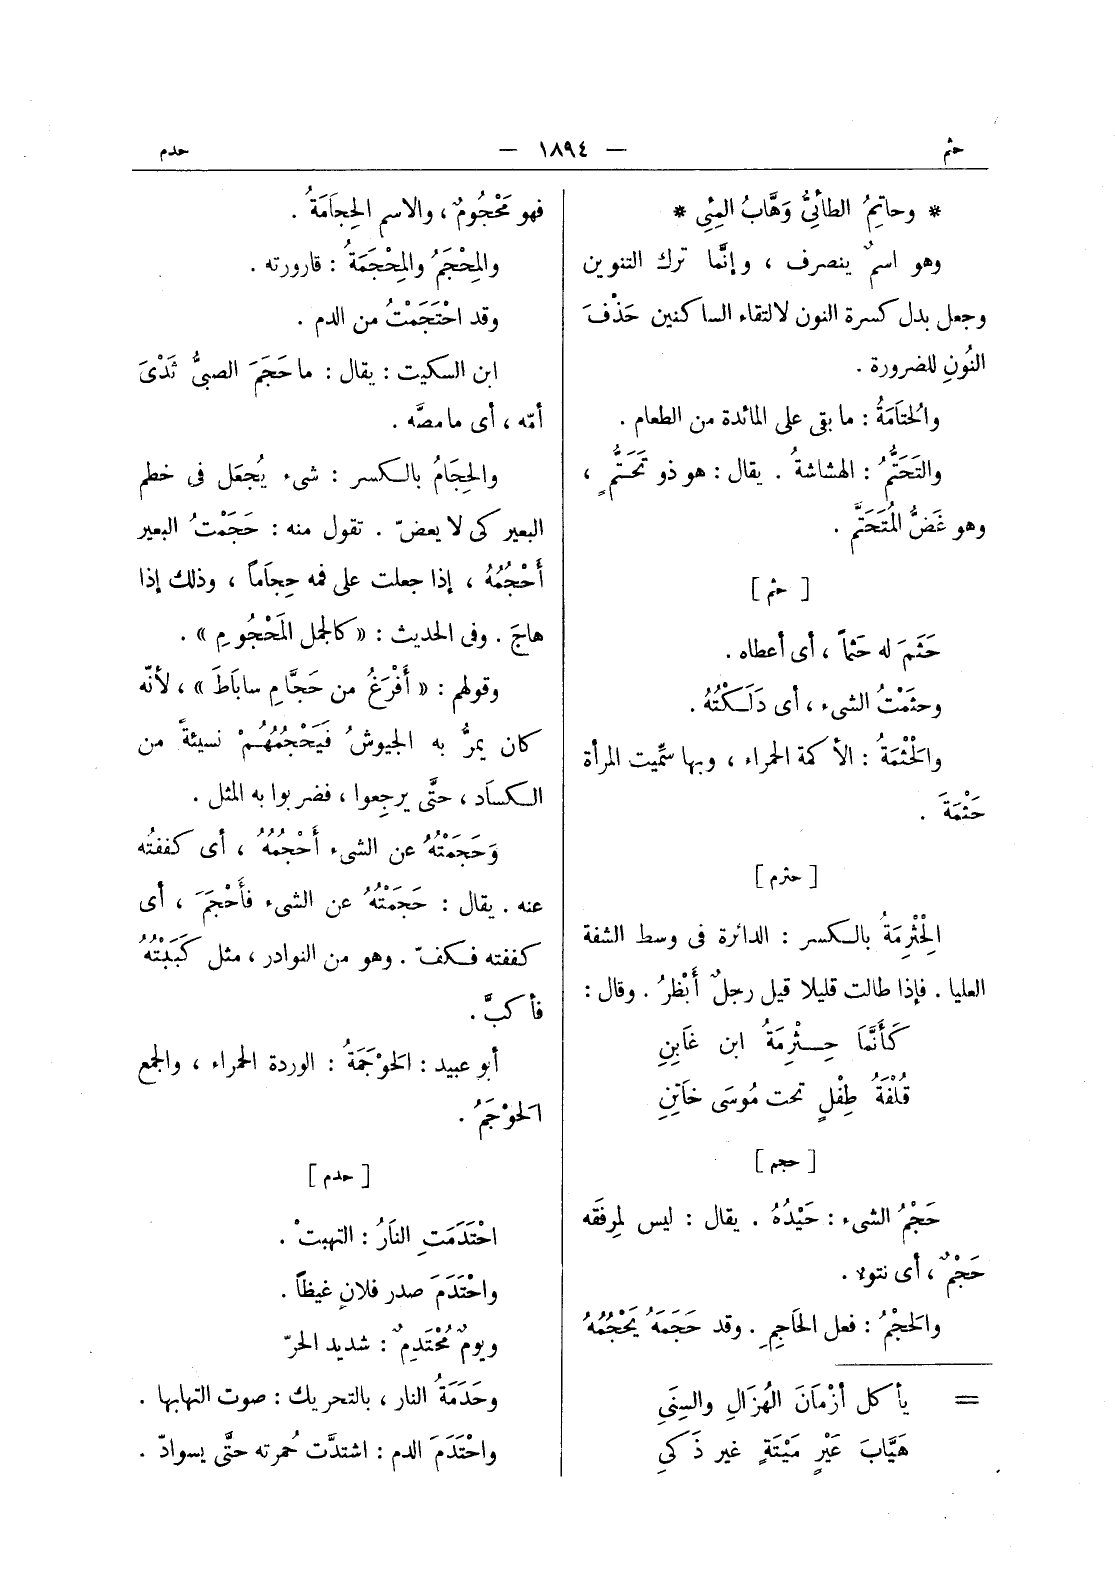 حثم
— ١٨٩٤ —
حدم
* وحاتِمُ الطائِيُّ وَهَّابُ المِئِى *
وهو اسمٌ ينصرف ، وإنَّما ترك التنوين
وجعل بدل كسرة النون لالتقاء الساكنين حَذْفَ
النُونِ للضرورة .
والُحتَامَةُ : ما بقى على المائدة من الطعام .
والتَحَتُّمُ : الهشاشةُ . يقال : هو ذو تَحَتُّمٍ ،
وهو غَضُّ المُتَحَتَّمِ .
[ حثم ]
حَثَمَ له حَثْماً ، أى أعطاه .
وحثَمْتُ الشىء ، أى دَلَكْتُهُ .
والَحْثْمَةُ : الأكمة الحمراء ، وبها سمِّيت المرأة
حَثْمَةَ .
[ حثرم ]
الِحْثْرِمَةُ بالكسر : الدائرة فى وسط الشفة
العليا . فإذا طالت قليلا قيل رجلٌ أَبْظَرُ . وقال :
كَأَنَّمَا حِثْرِمَةُ ابن غَابِنِ
قُلْفَةُ طِفْلٍ تحت مُوسَى خَاتِنِ
[ حجم ]
حَجْمُ الشىء : حَيْدُهُ . يقال : ليس لِمِرفَقه
حَجْمٌ ، أى نتوء .
والَحجْمُ : فعل الحَاجِمِ . وقد حَجَمَهُ يَحْجُمُهُ
= يأكل أزْمَانَ الهُزَالِ والسِنَى
هَيَّابَ عَيْرٍ مَيْتَةٍ غير ذَكِى
فهو مَحْجُومٌ ، والاسم الحِجاَمَةُ .
والمِحْجَمُ والمِحْجَمَةُ : قارورته .
وقد احْتَجَمْتُ من الدم .
ابن السكيت : يقال : ما حَجَمَ الصبىُّ ثَدْىَ
أمّه ، أى ما مصَّه .
والحِجَامُ بالكسر : شىء يُجعَل فى خطم
البعير كى لا يعضّ . تقول منه : حَجَمْتُ البعير
أَحْجُمُهُ ، إذا جعلت على فمه حِجاَماً ، وذلك إذا
هاجَ . وفى الحديث : « كالجمل المَحْجُومِ » .
وقولهم : « أَفْرَغُ من حَجَّامِ ساباَطَ » ، لأنّه
كان يمرُّ به الجيوشُ فَيَحْجُمُهُمْ نسيئةً من
الكسَاد ، حتَّى يرجِعوا ، فضربوا به المثل .
وَحَجَمْتُهُ عن الشىء أَحْجُمُهُ ، أى كففتُه
عنه . يقال : حَجَمْتُهُ عن الشىء فأَحْجَمَ ، أى
كففته فكفّ . وهو من النوادر ، مثل كَبَبْتُهُ
فأكبَّ .
أبو عبيد : الَحوْجَمَةُ : الوردة الحمراء ، والجمع
الَحوْجَمُ .
[ حدم ]
احْتَدَمَتِ النَارُ : التهبتْ .
واحْتَدَمَ صدر فلانٍ غيظاً .
ويومٌ مُحْتَدِمٌ : شديد الحرّ
وحَدَمَةُ النار ، بالتحريك : صوت التهابها .
واحْتَدَمَ الدم : اشتدَّت حُمرته حتَّى يسوادّ .